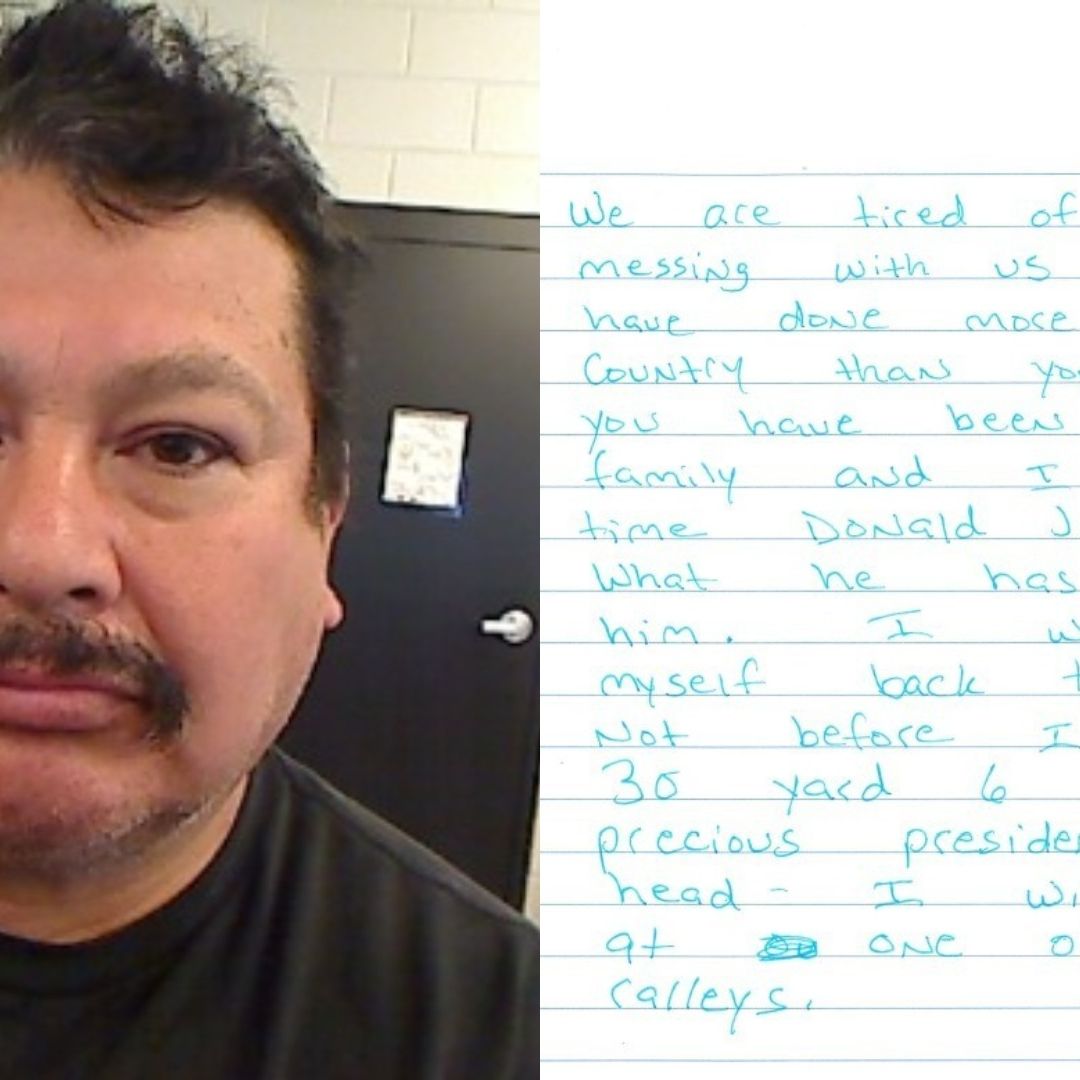 We are tired of
messing with us
have done more
Country than yo
you have been
family and I
time Donald J
What he has
him. I w
myself back t
Not before I
30 yard 6
precious preside
head - I wi
at one o
ralleys.